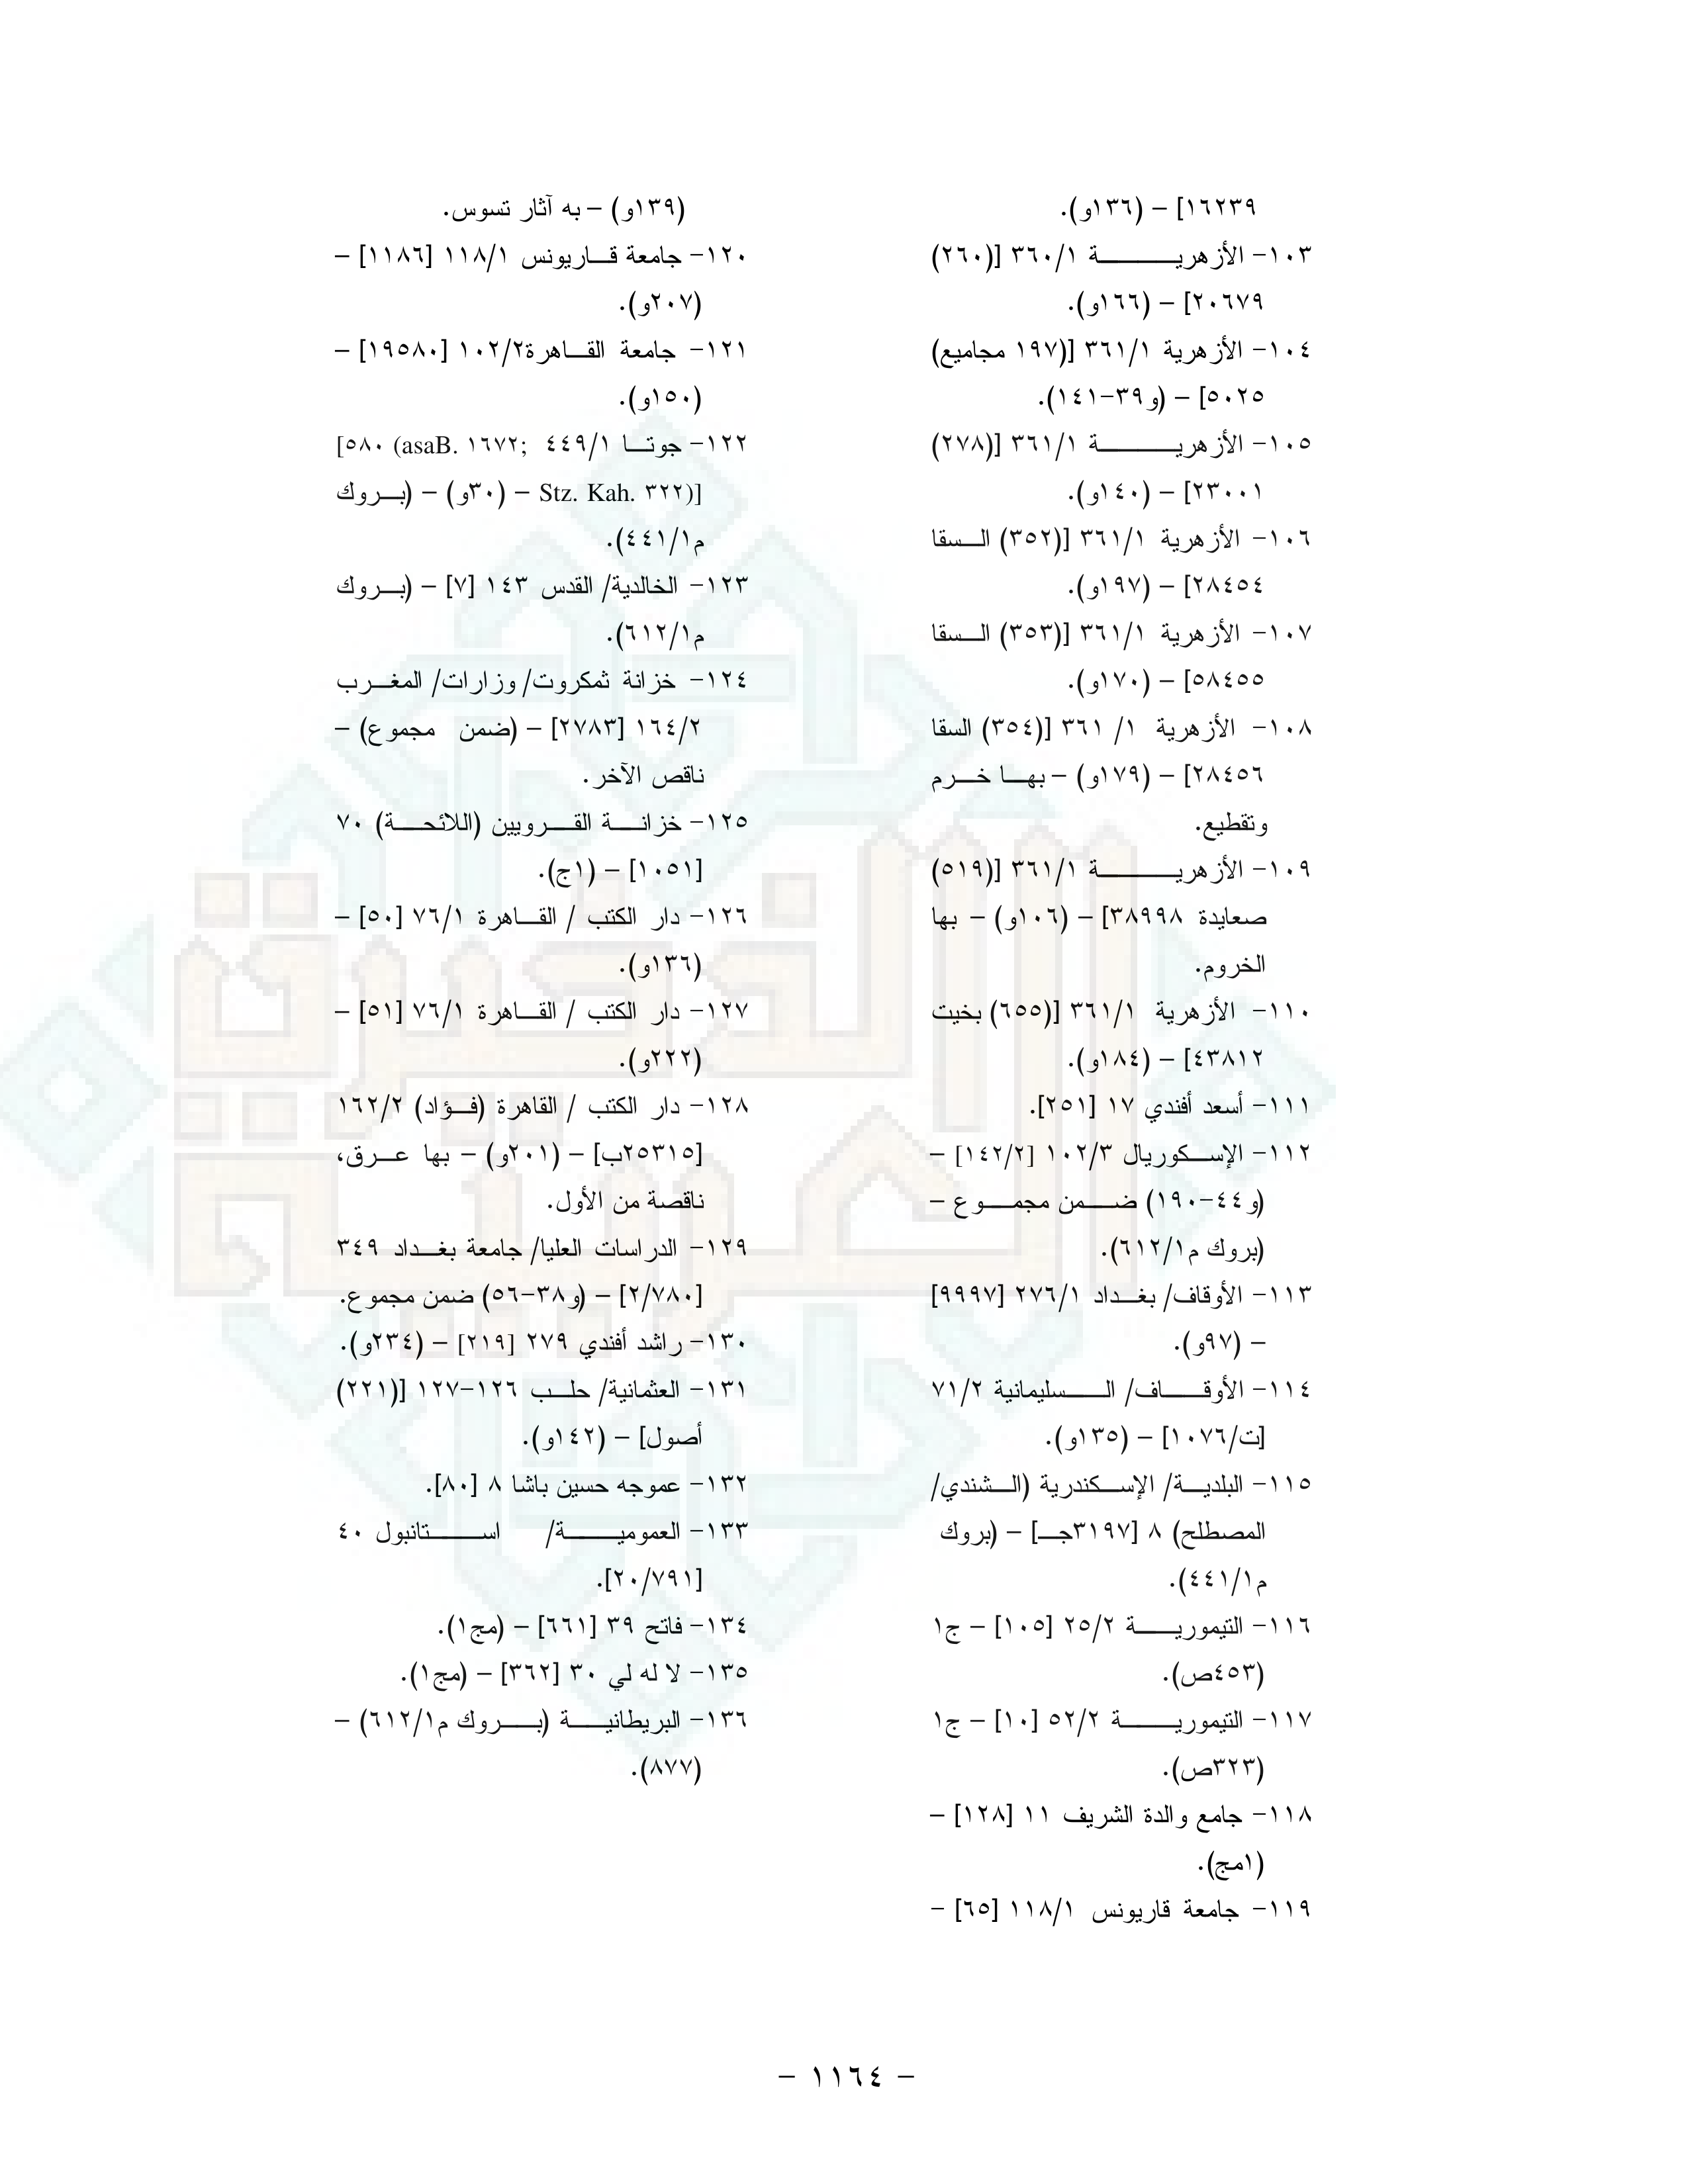 ١٦٢٣٩] – (١٣٦و).
١٠٣- الأزهرية ٣٦٠/١ [(٢٦٠)
٢٠٦٧٩] – (١٦٦و).
١٠٤- الأزهرية ٣٦١/١ [(١٩٧ مجاميع)
٥٠٢٥] – (و٣٩-١٤١).
١٠٥- الأزهرية ٣٦١/١ [(٢٧٨)
٢٣٠٠١] – (١٤٠و).
١٠٦- الأزهرية ٣٦١/١ [(٣٥٢) السقا
٢٨٤٥٤] – (١٩٧و).
١٠٧- الأزهرية ٣٦١/١ [(٣٥٣) السقا
٥٨٤٥٥] – (١٧٠و).
١٠٨- الأزهرية ١/ ٣٦١ [(٣٥٤) السقا
٢٨٤٥٦] – (١٧٩و) – بها خرم
وتقطيع.
١٠٩- الأزهرية ٣٦١/١ [(٥١٩)
صعايدة ٣٨٩٩٨] – (١٠٦و) – بها
الخروم.
١١٠- الأزهرية ٣٦١/١ [(٦٥٥) بخيت
٤٣٨١٢] – (١٨٤و).
١١١- أسعد أفندي ١٧ [٢٥١].
١١٢- الإسكوريال ١٠٢/٣ [١٤٢/٢] –
(و٤٤-١٩٠) ضمن مجموع –
(بروك م٦١٢/١).
١١٣- الأوقاف/ بغداد ٢٧٦/١ [٩٩٩٧]
– (٩٧و).
١١٤- الأوقاف/ السليمانية ٧١/٢
[ت/١٠٧٦] – (١٣٥و).
١١٥- البلدية/ الإسكندرية (الشندي/
المصطلح) ٨ [٣١٩٧جـ] – (بروك
م٤٤١/١).
١١٦- التيمورية ٢٥/٢ [١٠٥] – ج١
(٤٥٣ص).
١١٧- التيمورية ٥٢/٢ [١٠] – ج١
(٣٢٣ص).
١١٨- جامع والدة الشريف ١١ [١٢٨] –
(١مج).
١١٩- جامعة قاريونس ١١٨/١ [٦٥] –
(١٣٩و) – به آثار تسوس.
١٢٠- جامعة قاريونس ١١٨/١ [١١٨٦] –
(٢٠٧و).
١٢١- جامعة القاهرة١٠٢/٢ [١٩٥٨٠] –
(١٥٠و).
١٢٢- جوتا ٤٤٩/١ [٥٨٠ (asaB. ١٦٧٢;
Stz. Kah. ٣٢٢)] – (٣٠و) – (بروك
م٤٤١/١).
١٢٣- الخالدية/ القدس ١٤٣ [٧] – (بروك
م٦١٢/١).
١٢٤- خزانة ثمكروت/ وزارات/ المغرب
١٦٤/٢ [٢٧٨٣] – (ضمن مجموع) –
ناقص الآخر.
١٢٥- خزانة القرويين (اللائحة) ٧٠
[١٠٥١] – (١ج).
١٢٦- دار الكتب / القاهرة ٧٦/١ [٥٠] –
(١٣٦و).
١٢٧- دار الكتب / القاهرة ٧٦/١ [٥١] –
(٢٢٢و).
١٢٨- دار الكتب / القاهرة (فؤاد) ١٦٢/٢
[٢٥٣١٥ب] – (٢٠١و) – بها عرق،
ناقصة من الأول.
١٢٩- الدراسات العليا/ جامعة بغداد ٣٤٩
[٢/٧٨٠] – (و٣٨-٥٦) ضمن مجموع.
١٣٠- راشد أفندي ٢٧٩ [٢١٩] – (٢٣٤و).
١٣١- العثمانية/ حلب ١٢٦-١٢٧ [(٢٢١)
أصول] – (١٤٢و).
١٣٢- عموجه حسين باشا ٨ [٨٠].
١٣٣- العمومية/ استانبول ٤٠
[٢٠/٧٩١].
١٣٤- فاتح ٣٩ [٦٦١] – (مج١).
١٣٥- لا له لي ٣٠ [٣٦٢] – (مج١).
١٣٦- البريطانية (بروك م٦١٢/١) –
(٨٧٧).
– ١١٦٤ –